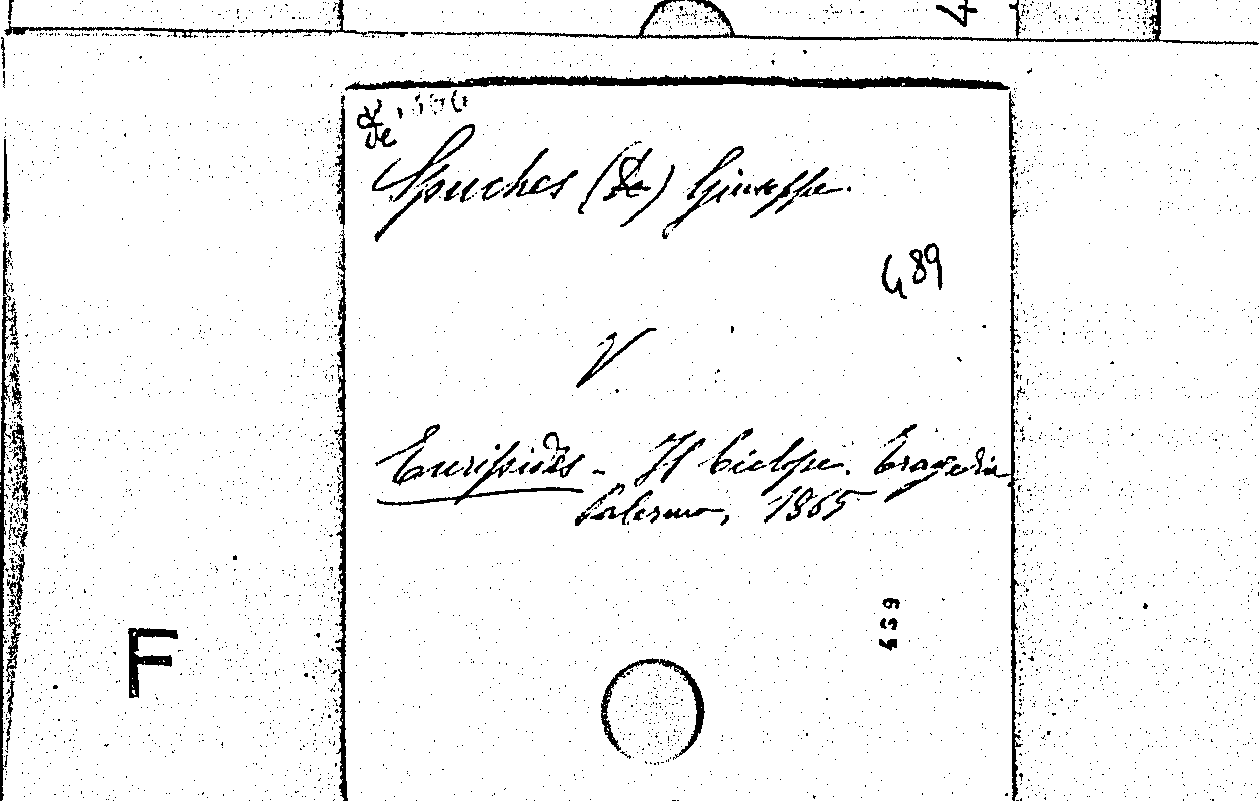 De
Spuches (De) Giuseppe.
489
V
Euripides - Il Ciclope. Tragedia
Palermo, 1865
F